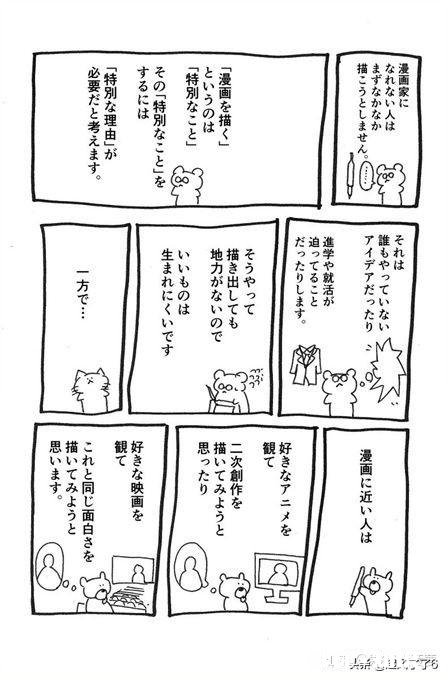 漫画家に
なれない人は
まずなかなか
描こうとしません。
………
「漫画を描く」
というのは
「特別なこと」
その「特別なこと」を
するには
「特別な理由」が
必要だと考えます。
それは
誰もやっていない
アイデアだったり
進学や就活が
迫ってること
だったりします。
そうやって
描き出しても
地力がないので
いいものは
生まれにくいです
一方で…
漫画に近い人は
好きなアニメを
観て
二次創作を
描いてみようと
思ったり
好きな映画を
観て
これと同じ面白さを
描いてみようと
思います。